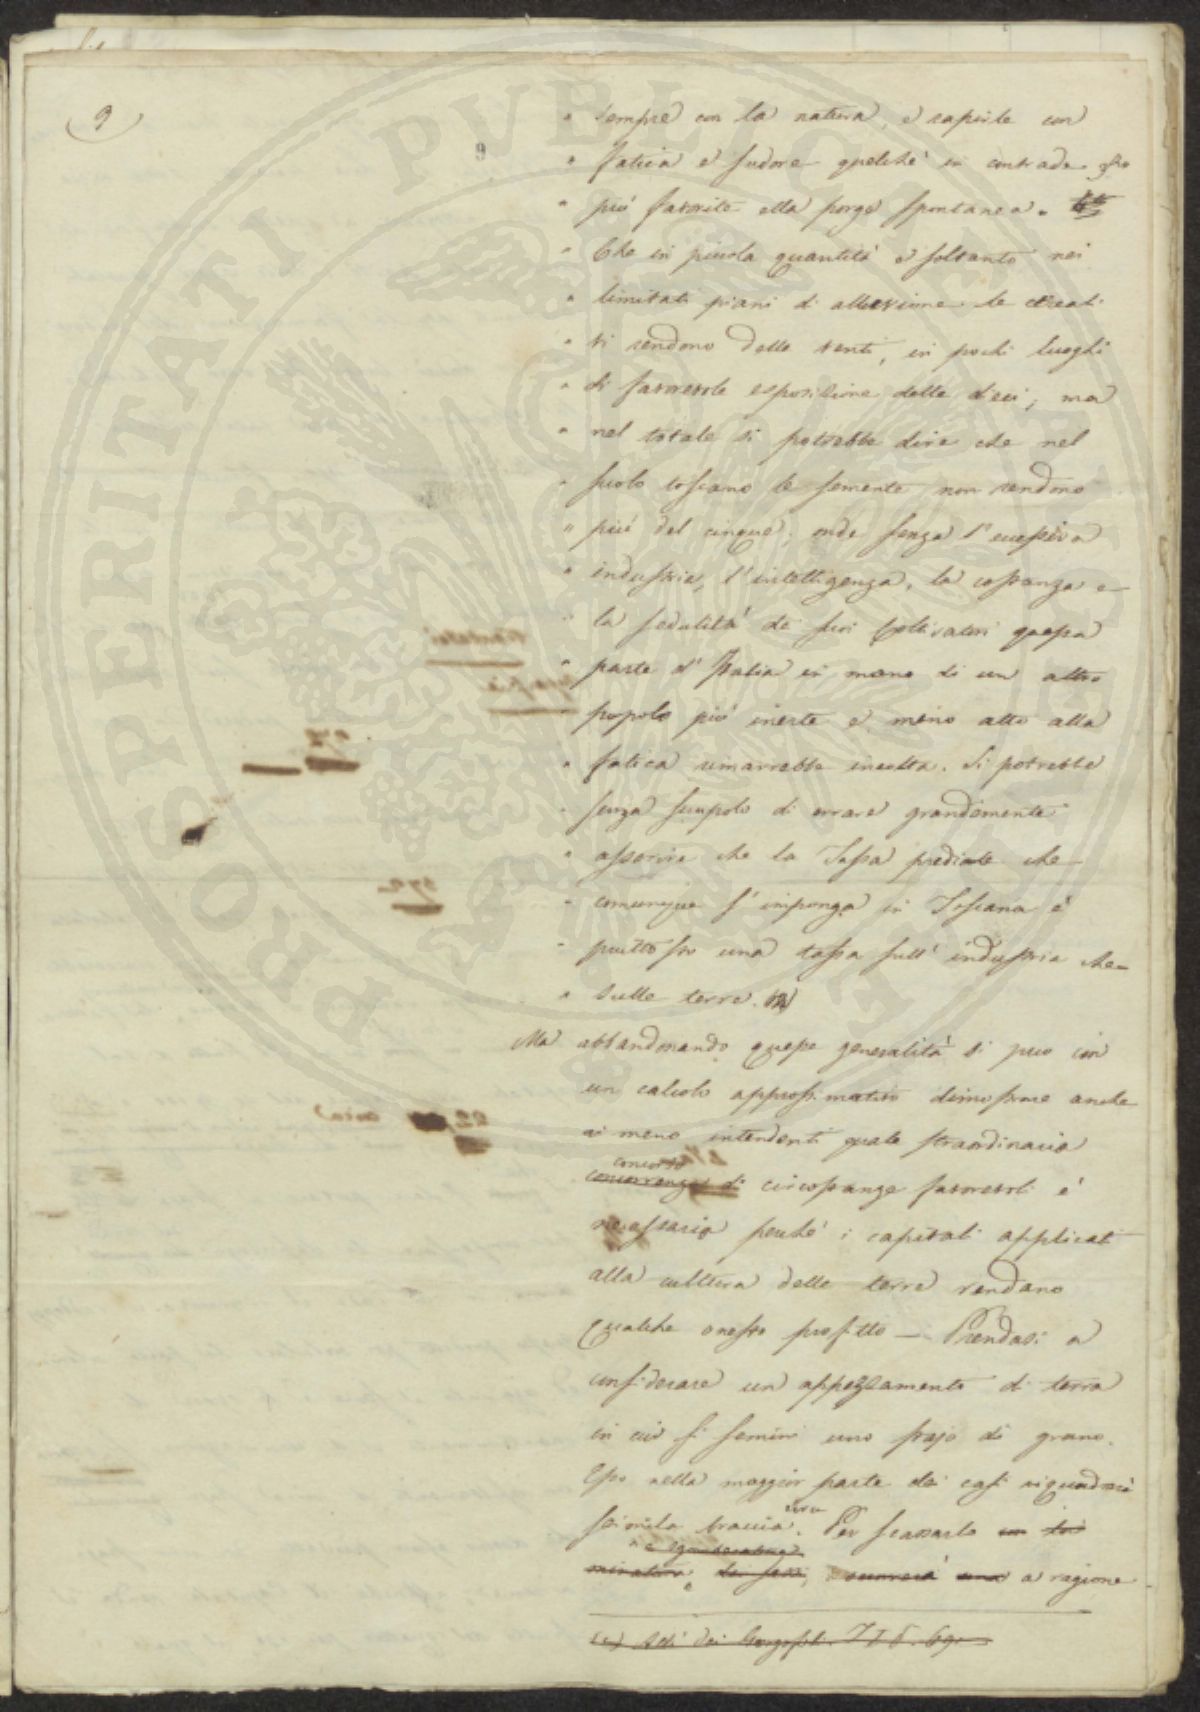 9
9
" sempre con la natura, e rapirle con
" fatica e sudore quelchè in contrade
" più favorite ella porge spontanea.
" Che in piccola quantità e soltanto nei
" limitati piani di alluvione le cereali
" vi rendono delle venti, in pochi luoghi
" di favorevole esposizione delle dieci, ma
" nel totale si potrebbe dire che nel
" suolo toscano le semente non rendono
" più del cinque; onde senza l'eccessiva
" industria, l'intelligenza, la costanza e
" la sedulità dei suoi coltivatori questa
" parte d'Italia in mano di un altro
" popolo più inerte e meno atto alla
" fatica rimarrebbe inculta. Si potrebbe
" senza scrupolo di errare grandemente
" asserire che la Tassa prediale che
" comunque s'imponga in Toscana è
" piuttosto una tassa sull'industria che
" sulle terre.
Ma abbandonando queste generalità si puo con
un calcolo approssimativo dimostrare anche
ai meno intendenti quale straordinario
concorso
concorrenza di circostanze favorevoli è
necessario perchè i capitali applicati
alla cultura delle terre rendano
qualche onesto profitto — Prendasi a
considerare un appezzamento di terra
in cui si semini uno stajo di grano.
Esso nella maggior parte dei casi riquadrerà
seimila braccia. circa Per scassarlo un
dei sassi, occorrerà una a ragione
Atti dei Georgofili. 69.
PROSPERITATI PVBLICAE